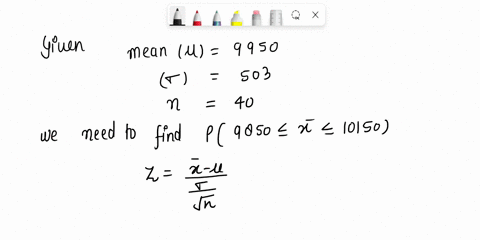 Given mean (μ) = 9950
(σ) = 503
n = 40
we need to find P( 9850 ≤ x̄ ≤ 10150)
Z = x̄-μ / σ/√n